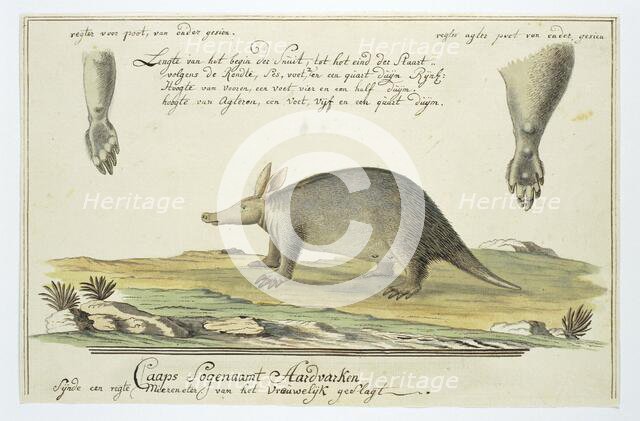 regter voor poot, van onder gesien.
regter agter poot van onder, gesien
Lengte van het begin der Snuit, tot het eind der Staart
volgens de Rondte, Ses, voet, en een quart duÿm Rÿnl:
Hoogte van vooren, een voet vier en een half duÿm.
hoogte van Agteren, een Voet, Vÿf en een quart duÿm.
Heritage
Heritage
Heritage
Heritage
Heritage
Heritage
Heritage
Caaps Sogenaamt Aardvarken
Sÿnde een regte Miereneter van het Vrouwelÿk geslagt